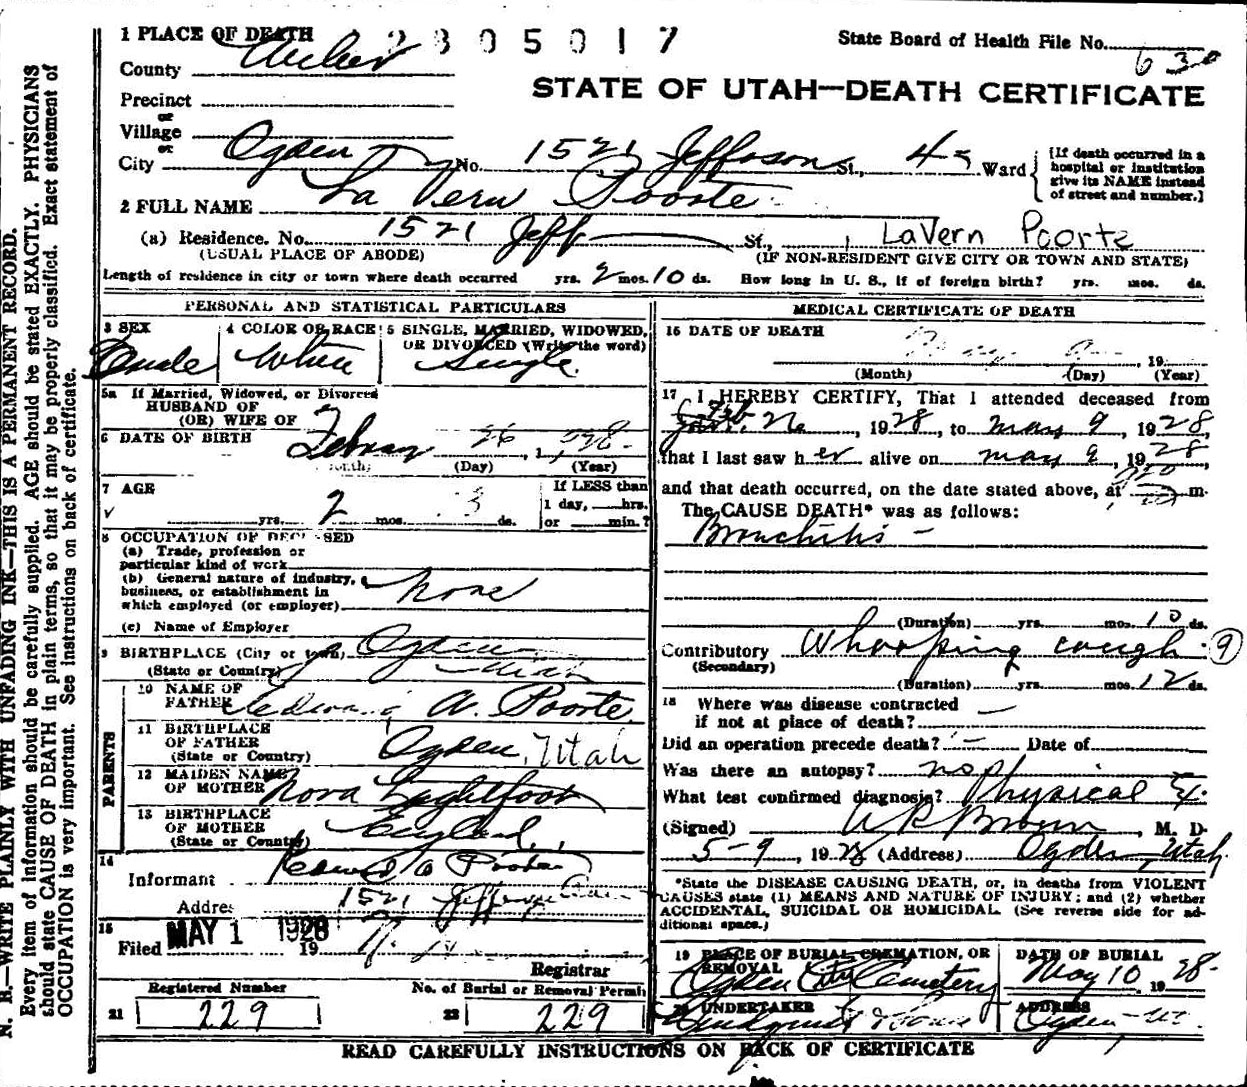 1 PLACE OF DEATH 2805017 State Board of Health File No. 630
County Weber
STATE OF UTAH—DEATH CERTIFICATE
Precinct
or
Village
or
City Ogden No. 1521 Jefferson St., 4th Ward
[If death occurred in a hospital or institution give its NAME instead of street and number.]
2 FULL NAME La Vern Poorte
(a) Residence. No. 1521 Jeff St., LaVern Poorte
(USUAL PLACE OF ABODE) (IF NON-RESIDENT GIVE CITY OR TOWN AND STATE)
Length of residence in city or town where death occurred yrs. 2 mos. 10 ds. How long in U. S., if of foreign birth? yrs. mos. ds.
PERSONAL AND STATISTICAL PARTICULARS
3 SEX 4 COLOR OR RACE 5 SINGLE, MARRIED, WIDOWED, OR DIVORCED (Write the word)
Female White Single
5a If Married, Widowed, or Divorced
HUSBAND OF
(OR) WIFE OF
6 DATE OF BIRTH 26, 1928
(Day) (Year)
7 AGE If LESS than
yrs. 2 mos. 3 ds. 1 day, hrs.
or min.?
8 OCCUPATION OF DECEASED
(a) Trade, profession or
particular kind of work
(b) General nature of industry,
business, or establishment in
which employed (or employer) none
(c) Name of Employer
9 BIRTHPLACE (City or town) Ogden
(State or Country) Utah
PARENTS
10 NAME OF
FATHER Edward A. Poorte
11 BIRTHPLACE
OF FATHER
(State or Country) Ogden, Utah
12 MAIDEN NAME
OF MOTHER Nora Lightfoot
13 BIRTHPLACE
OF MOTHER
(State or Country) England
14
Informant Edward A Poorte
Address 1521 Jefferson Ave
15 Filed MAY 1 1928 19
Registrar
Registered Number No. of Burial or Removal Permit
21 229 22 229
MEDICAL CERTIFICATE OF DEATH
16 DATE OF DEATH
May 19
(Month) (Day) (Year)
17 I HEREBY CERTIFY, That I attended deceased from
Feb 26, 1928, to May 9, 1928,
that I last saw her alive on May 9, 1928,
and that death occurred, on the date stated above, at m.
The CAUSE DEATH* was as follows:
Bronchitis -
(Duration) yrs. mos. 10 ds.
Contributory Whooping cough 9
(Secondary)
(Duration) yrs. mos. 12 ds.
18 Where was disease contracted
if not at place of death? —
Did an operation precede death? — Date of
Was there an autopsy? no
What test confirmed diagnosis? Physical Ex.
(Signed) W R Brown, M. D.
5-9, 1928 (Address) Ogden, Utah
*State the DISEASE CAUSING DEATH, or, in deaths from VIOLENT
CAUSES state (1) MEANS AND NATURE OF INJURY; and (2) whether
ACCIDENTAL, SUICIDAL OR HOMICIDAL. (See reverse side for ad-
ditional space.)
19 PLACE OF BURIAL, CREMATION, OR REMOVAL DATE OF BURIAL
Ogden City Cemetery May 10 1928
20 UNDERTAKER ADDRESS
Lindquist & Sons Ogden, Ut.
READ CAREFULLY INSTRUCTIONS ON BACK OF CERTIFICATE
N. B.—WRITE PLAINLY WITH UNFADING INK—THIS IS A PERMANENT RECORD.
Every item of information should be carefully supplied. AGE should be stated EXACTLY. PHYSICIANS
should state CAUSE OF DEATH in plain terms, so that it may be properly classified. Exact statement of
OCCUPATION is very important. See instructions on back of certificate.